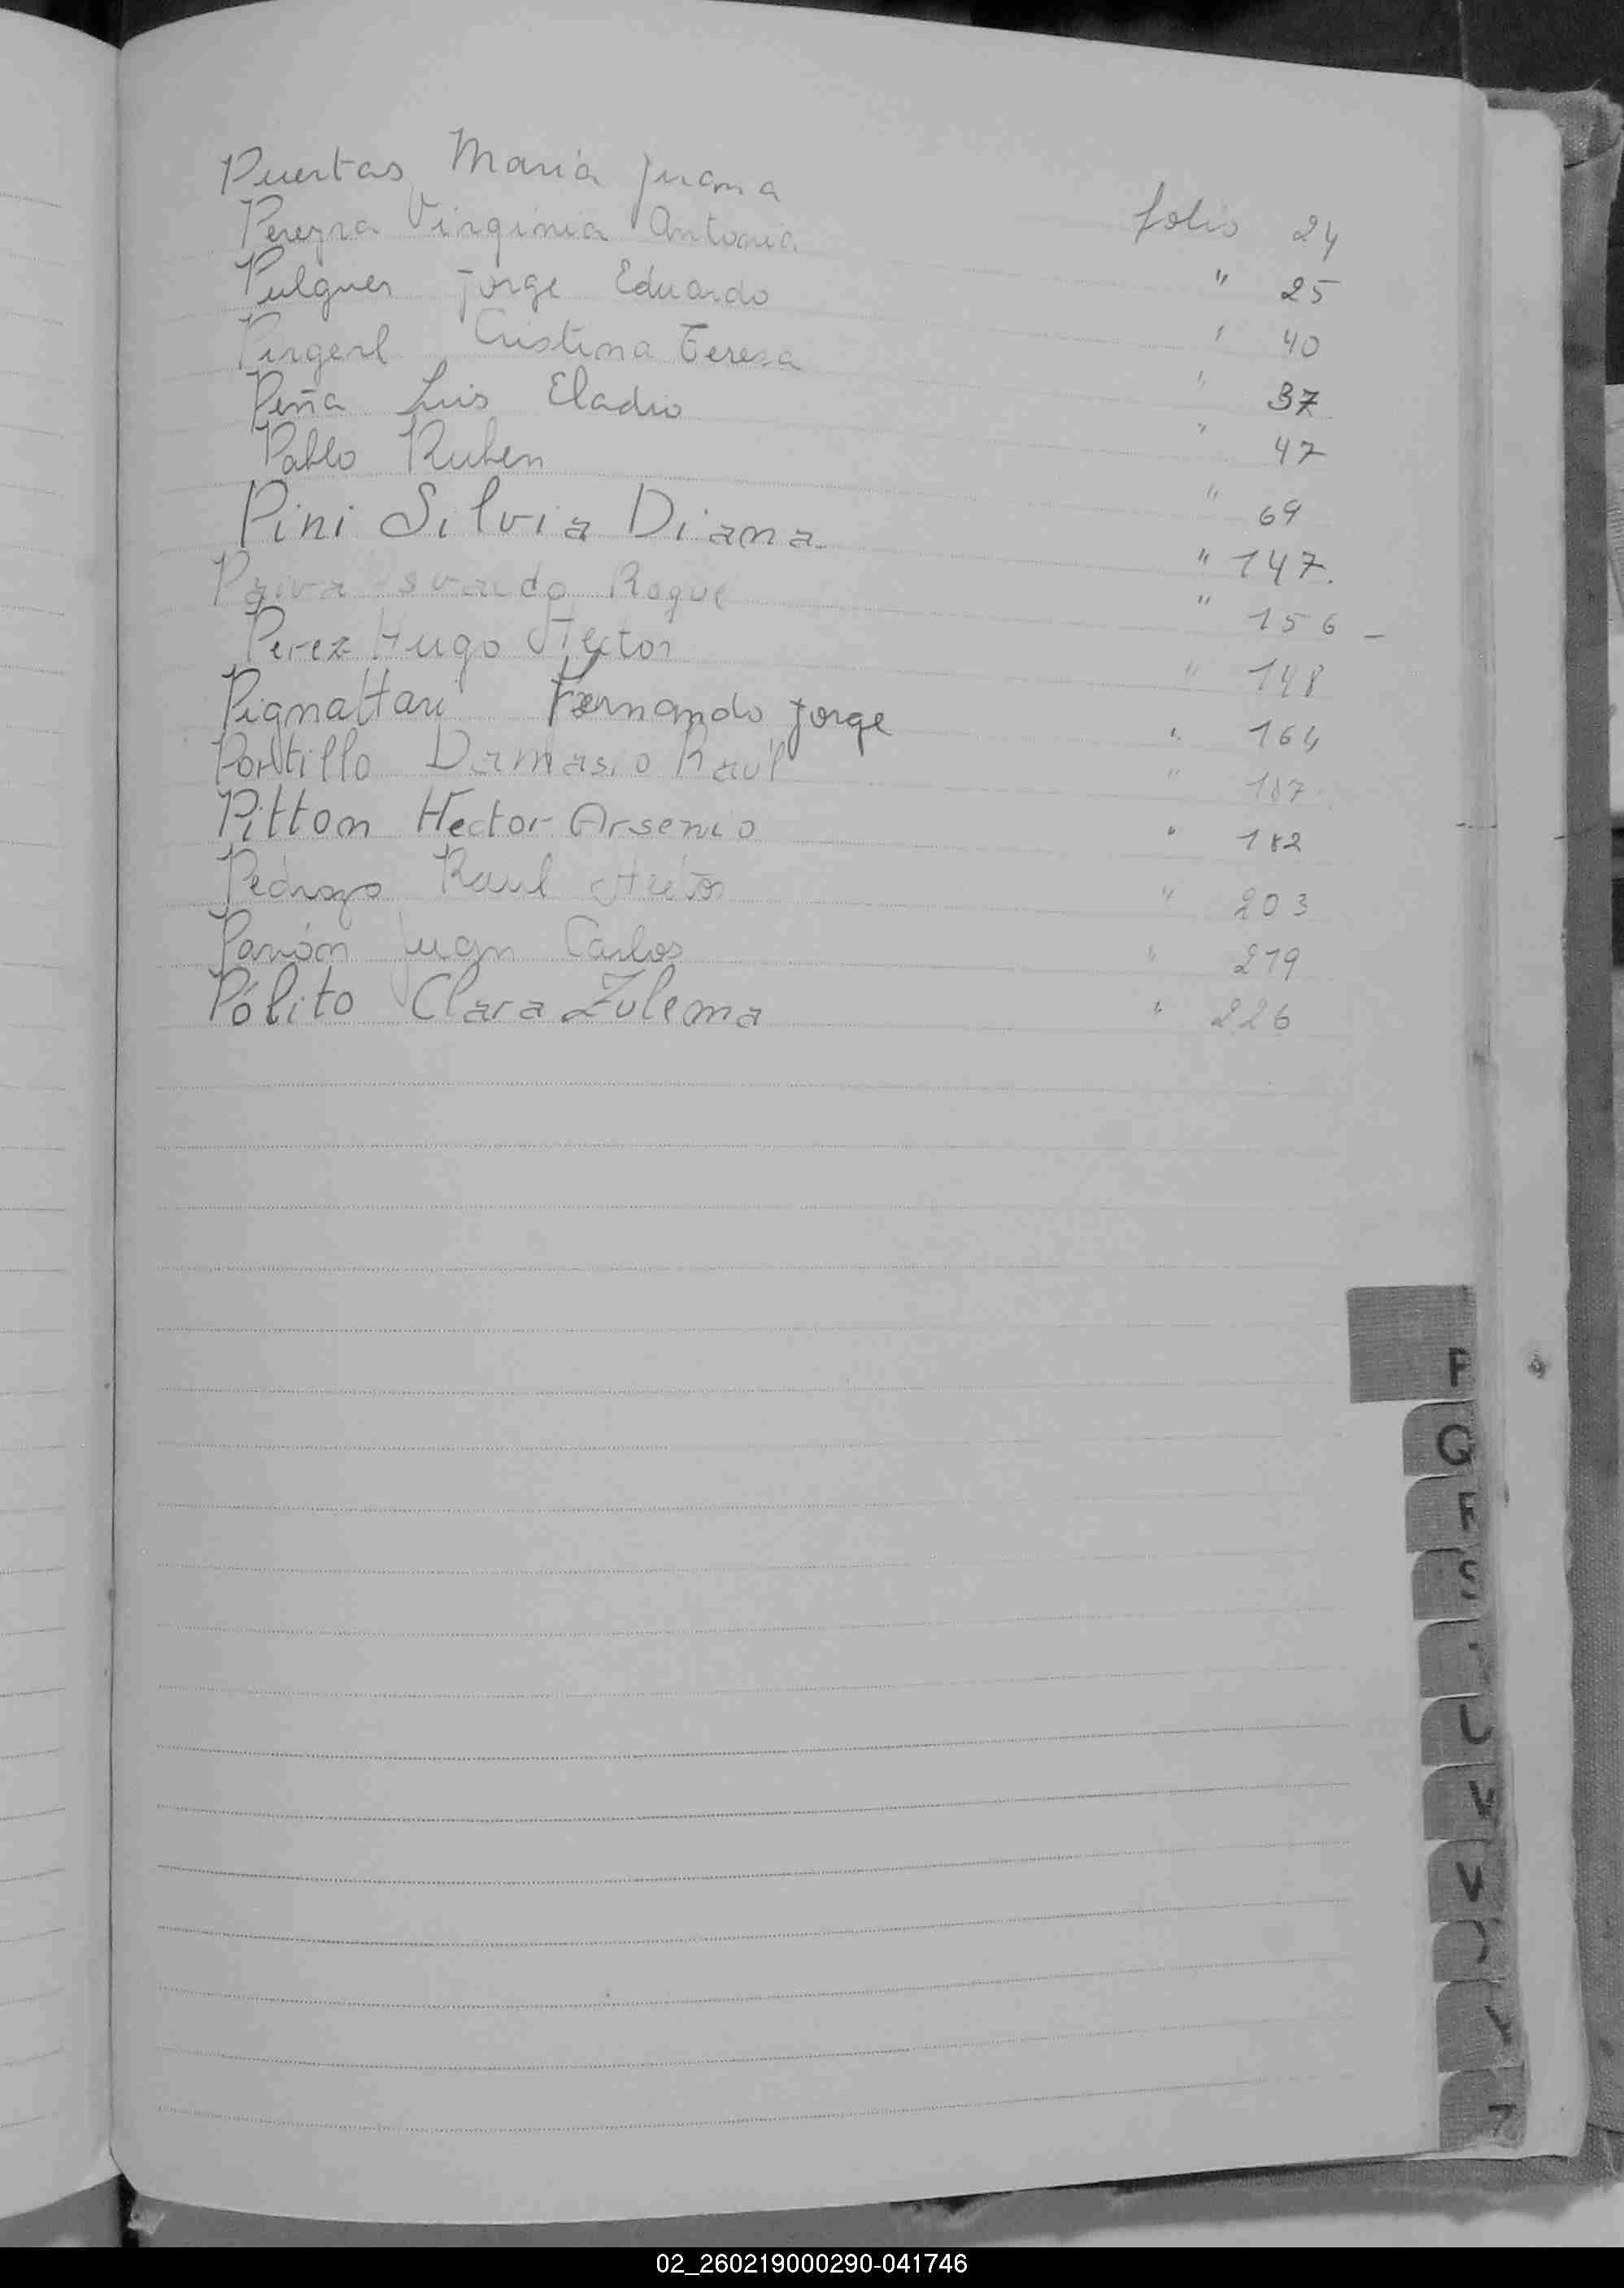 Puertas Maria Juana folio 24
Pereyra Virginia Antonia " 25
Pulguer Jorge Eduardo " 40
Cristina Teresa " 37
Peña Luis Eladio " 47
Pablo Ruben " 69
Pini Silvia Diana " 147.
Roque " 156 -
Perez Hugo Hector " 148
Pignattari Fernando Jorge " 164
Portillo Damasio Raúl " 187
Pitton Hector Arsenio " 182
Pedrozo Raul " 203
Pavón Juan Carlos " 219
Pólito Clara Zulema " 226
P
Q
R
S
U
V
Y
Z
02_260219000290-041746